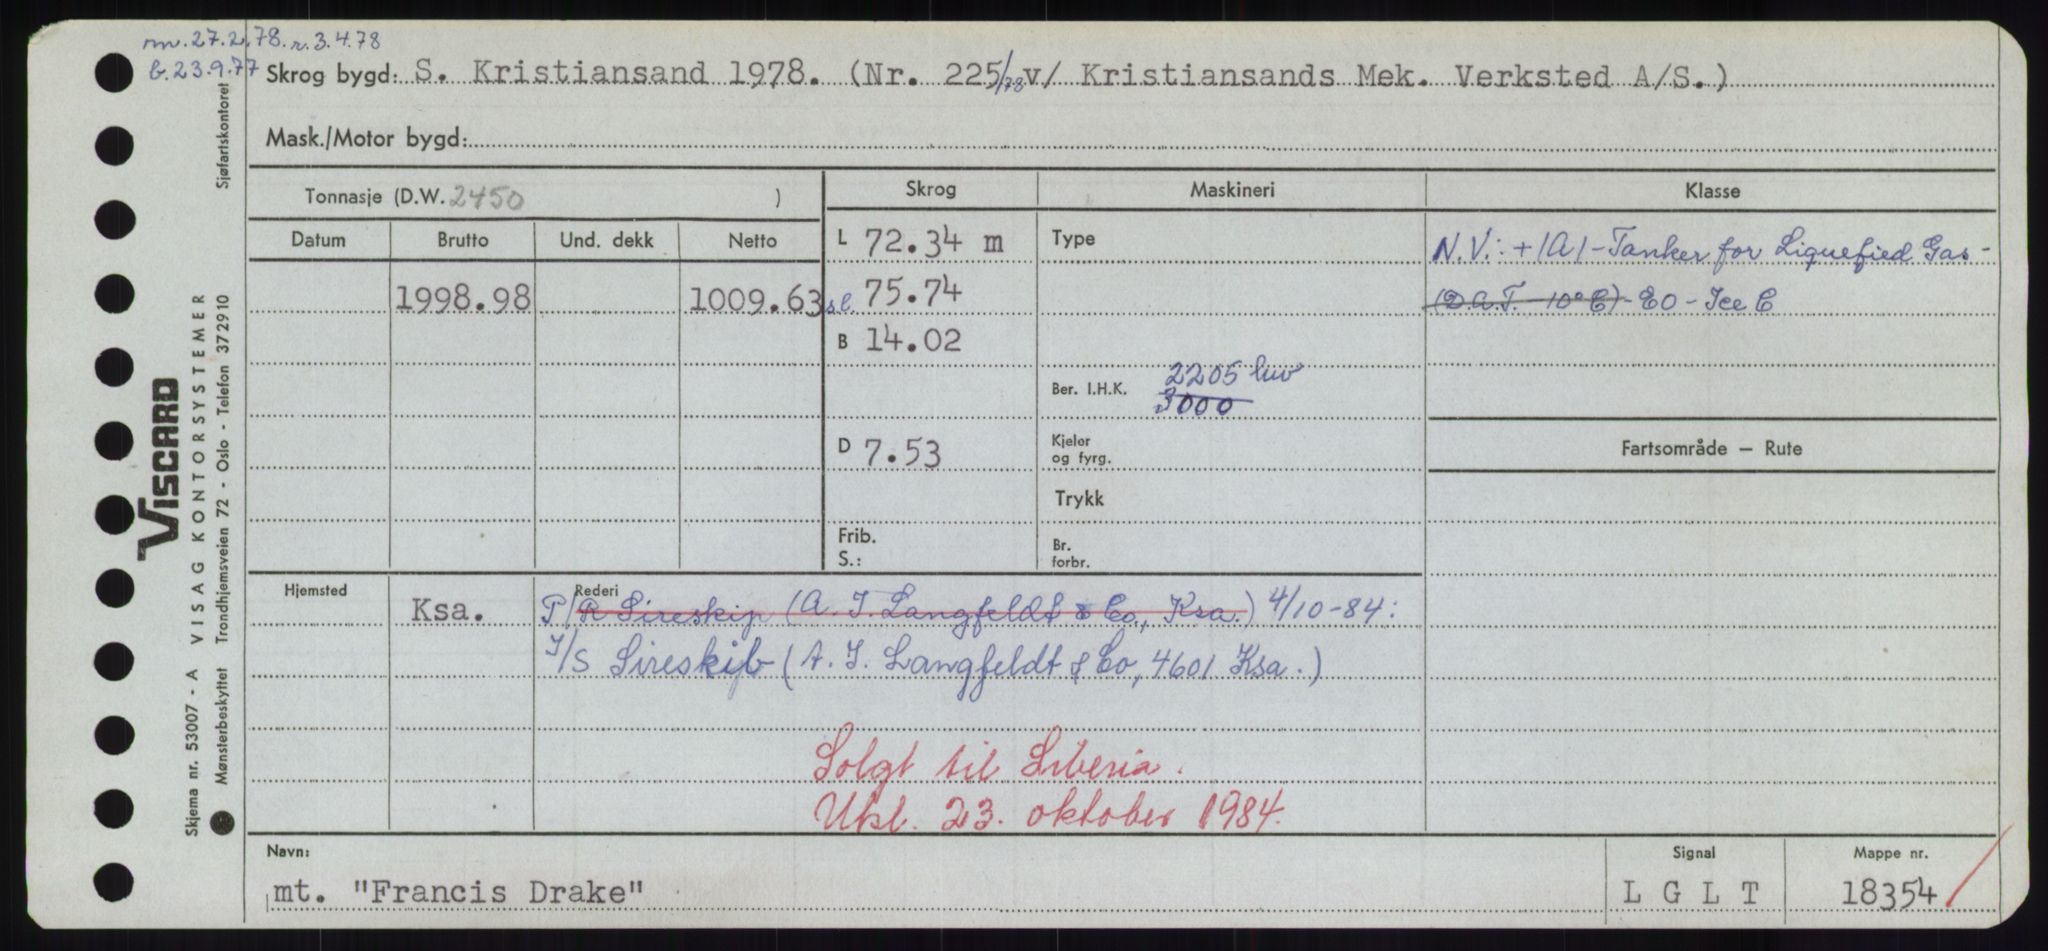 m.27.2.78. r.3.4.78
b.23.9.77 Skrog bygd: S. Kristiansand 1978. (Nr. 225/78 v/ Kristiansands Mek. Verksted A/S.)
Mask./Motor bygd:
Tonnasje (D.W. 2450 )
Skrog Maskineri Klasse
Datum Brutto Und. dekk Netto
L 72.34 m Type
N.V.: + 1A1 - Tanker for Liquefied Gas -
1998.98 1009.63 s.l. 75.74
(D.a.T. - 10° C) - EO - Ice C
B 14.02
Ber. I.H.K. 2205 kw
3000
D 7.53 Kjeler
og fyrg.
Fartsområde — Rute
Trykk
Frib.
S.:
Br.
forbr.
Hjemsted Rederi
Ksa. P/R Sireskip (A. I. Langfeldt & Co., Ksa.) 4/10-84:
I/S Sireskib (A. I. Langfeldt & Co, 4601 Ksa.)
Solgt til Liberia.
Utsl. 23. oktober 1984.
Navn: Signal Mappe nr.
mt. "Francis Drake" L G L T 18354
Sjøfartskontoret
VISCARD
Skjema nr. 53007 - A VISAG KONTORSYSTEMER
Mønsterbeskyttet Trondhjemsveien 72 - Oslo - Telefon 372910